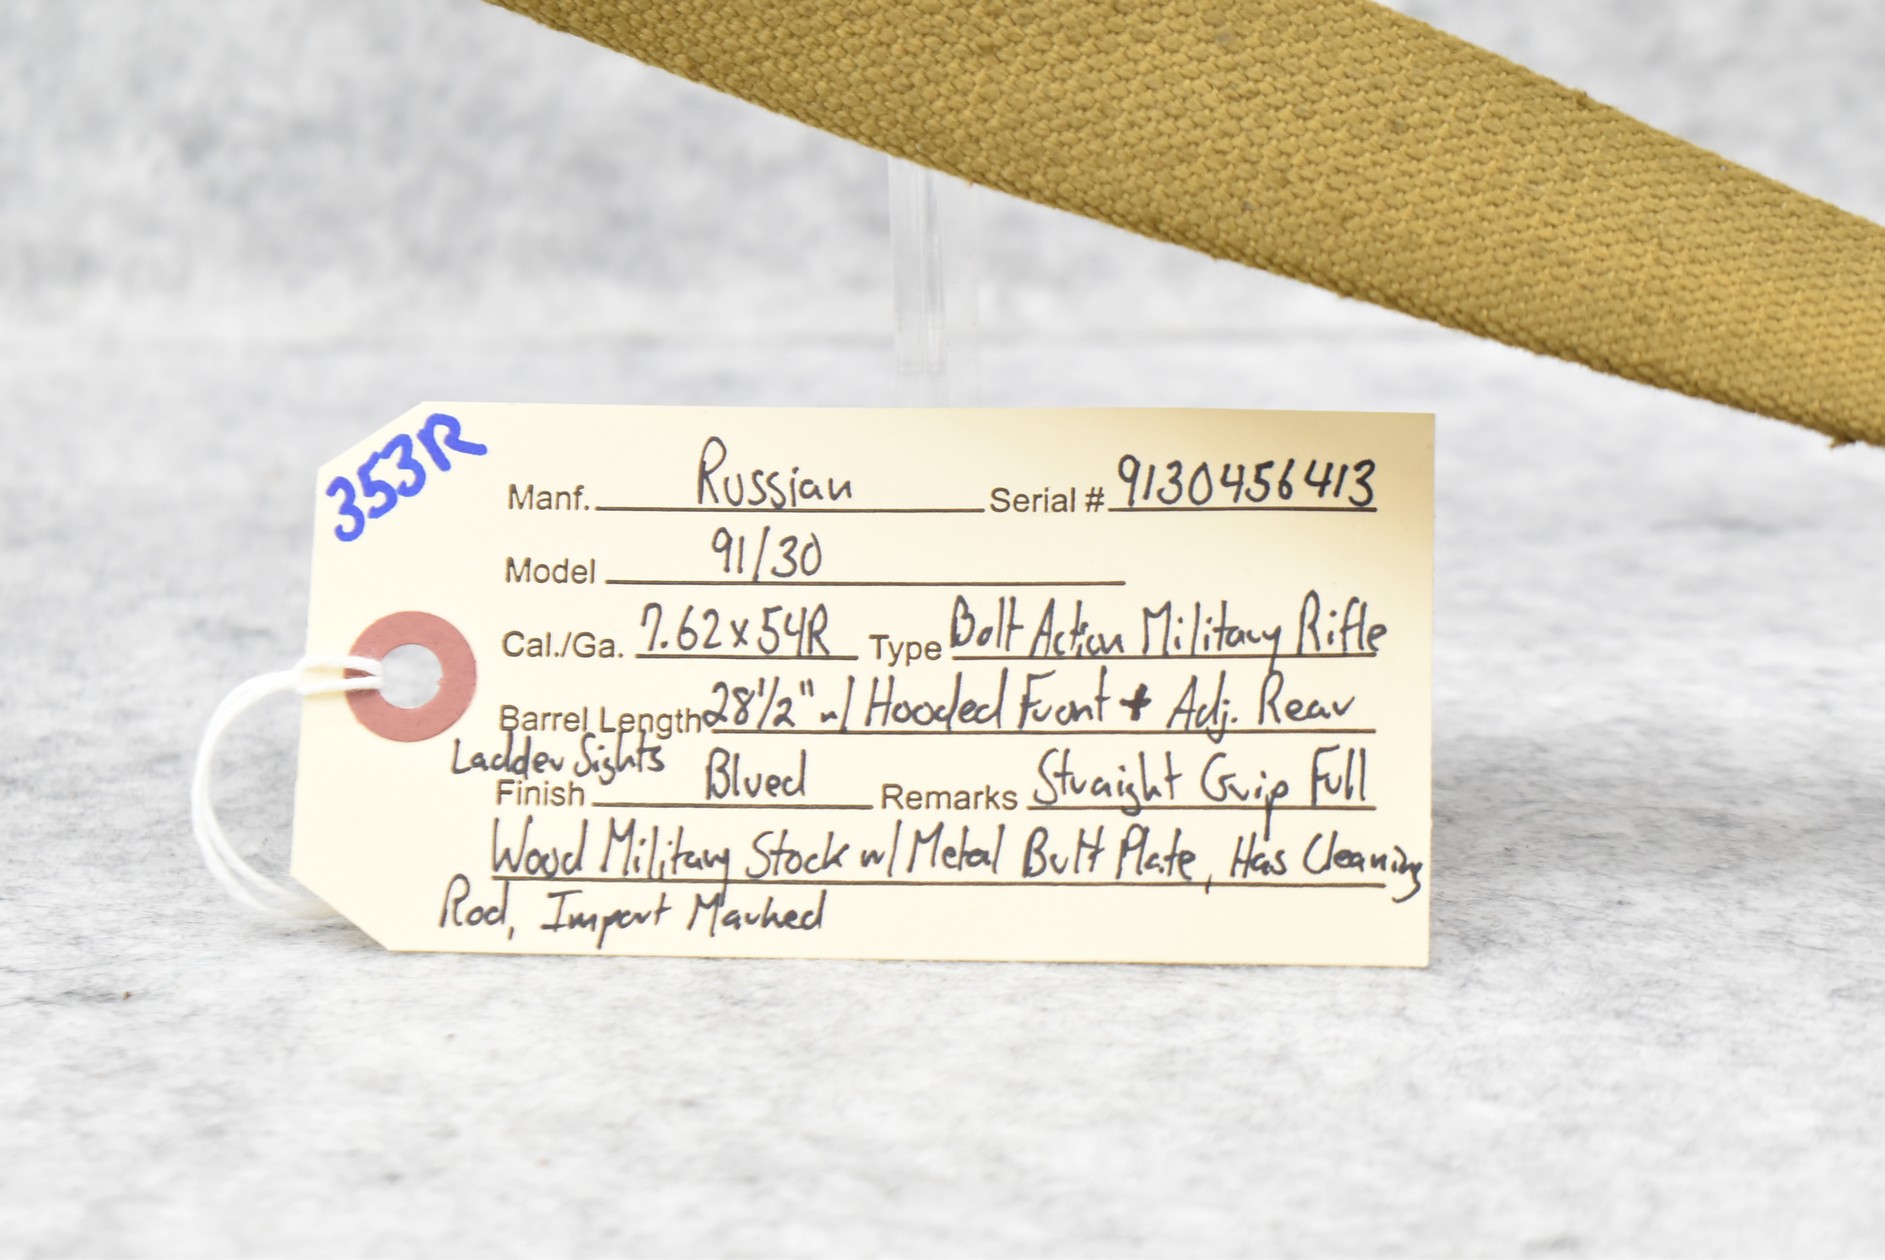 353R
Manf. Russian Serial # 9130456413
Model 91/30
Cal./Ga. 7.62x54R Type Bolt Action Military Rifle
Barrel Length 28 1/2" w/ Hooded Front + Adj. Rear
Ladder Sights
Finish Blued Remarks Straight Grip Full
Wood Military Stock w/ Metal Butt Plate, Has Cleaning
Rod, Import Marked